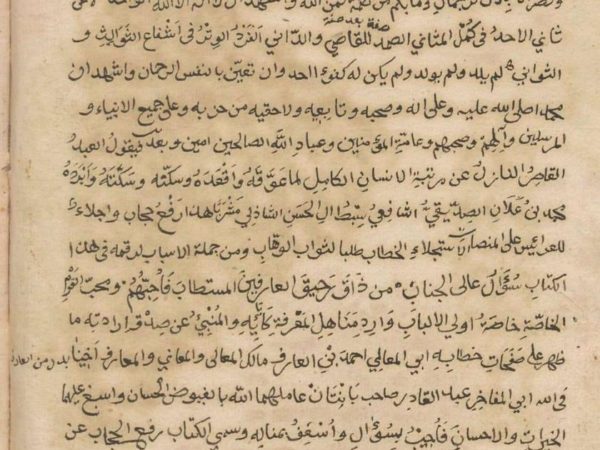 ثاني الاحد في كل المثاني الصمد للقاصي والداني الفرد الوتر في اشفاع الثوالث و
صفة بعد صفة
الثواني لم يلد ولم يولد ولم يكن له كفوءا احد وان تعين بالنفس الرحمان واشهد ان
محمدا صلى الله عليه وعلى اله وصحبه وتابعيه ولاحقيه من حزبه وعلى جميع الانبياء و
المرسلين وآلهم وصحبهم وعامة المؤمنين وعباد الله الصالحين امين وبعد فيقول العبد
القاصر النازل عن مرتبة الانسان الكامل لما عوقه واقعده وسكنه
محمد بن علان الصديقي الشافعي سبط ال الحسن الشاذلي مشربا هذا رفع حجاب واجلاء
للعرائس على المنصات استجلاء الخطاب طلبا لثواب الوهاب ومن جملة الاسباب لرقمه في هذا
الكتاب سؤال عالي الجناب من ذاق رحيق العارفين المستطاب فاحبهم ومحب القوم
الخاصة خاصة اولي الالباب وارد مناهل المعرفة كابيه والمنبئ عن صدق ارادته ما
ظهر على صفحات خطابه ابي المعالي احمد بن العارف مالك المعالي والمعاني والمعارف اخينا
في الله ابي المفاخر عبد القادر صاحب عاملهما الله بالفيوض الحسان واسبغ عليهما
الخيرات والاحسان فأجيب بسؤال واسعف بمناله وسمي الكتاب رفع الحجاب عن